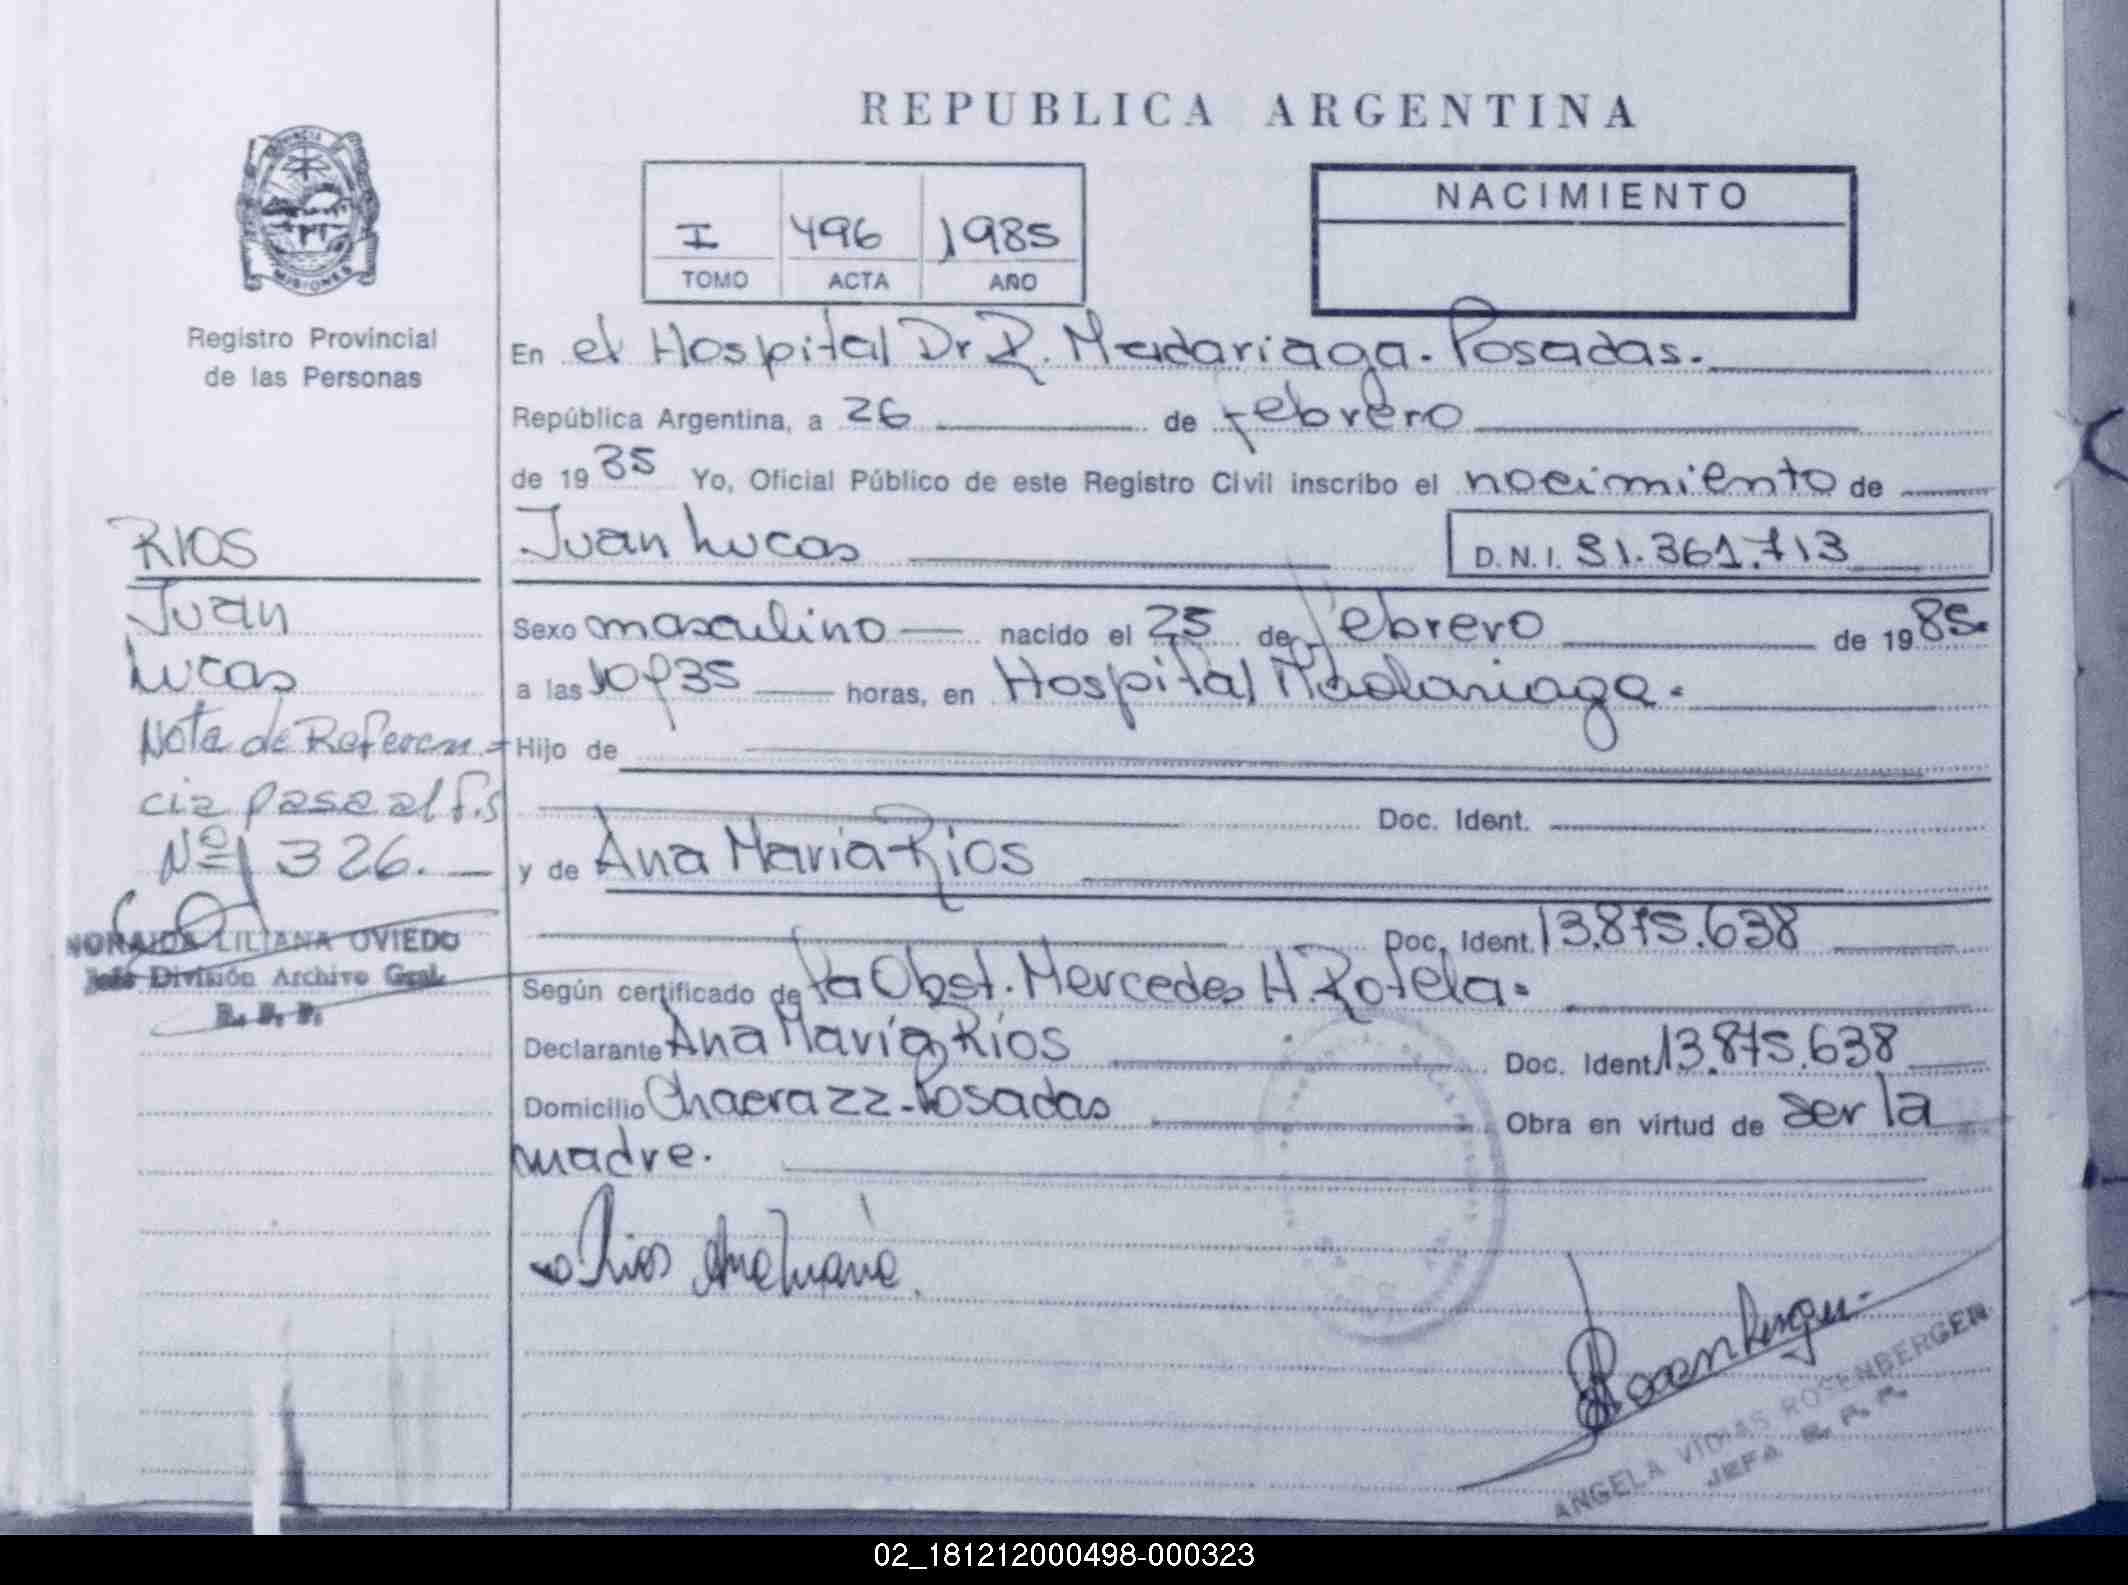 REPUBLICA ARGENTINA
PROVINCIA
MISIONES
Registro Provincial
de las Personas
I 496 1985
TOMO ACTA AÑO
NACIMIENTO
En el Hospital Dr R. Madariaga. Posadas.
República Argentina, a 26 de febrero
de 1985 Yo, Oficial Público de este Registro Civil inscribo el nacimiento de
Juan Lucas D.N.I. 31.361.713
Sexo masculino nacido el 25 de febrero de 1985.
a las 10 y 35 horas, en Hospital Madariaga.
Hijo de
Doc. Ident.
y de Ana María Rios
Doc. Ident. 13.875.638
Según certificado de la Obst. Mercedes H. Rotela.
Declarante Ana María Rios Doc. Ident. 13.875.638
Domicilio Chacra 22-Posadas Obra en virtud de ser la
madre.
Rios Ana Maria.
Rosenbergen
ANGELA VIDIAS ROSENBERGEN
JEFA R. P. P.
RIOS
Juan
Lucas
Nota de Referen=
cia pasa al f.s
Nº 326.
NORAIDA LILIANA OVIEDO
Jefe División Archivo Gral.
R. P. P.
02_181212000498-000323